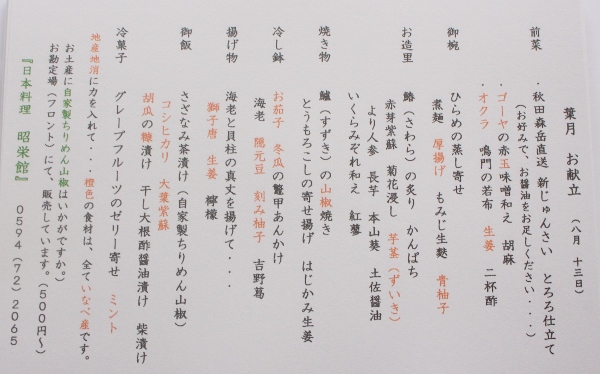 葉月　お献立　（八月　十三日）
前菜　・秋田森岳直送 新じゅんさい　とろろ仕立て
（お好みで、お醤油をお足しください・・・・）
・ゴーヤの赤玉味噌和え　胡麻
・オクラ　鳴門の若布　生姜　二杯酢
御椀　ひらめの蒸し寄せ
煮麺　厚揚げ　もみじ生麩　青柚子
お造里　鰆（さわら）の炙り　かんぱち
赤芽紫蘇　菊花浸し　芋茎（ずいき）
より人参　長芋　本山葵　土佐醤油
いくらみぞれ和え　紅蓼
焼き物　鱸（すずき）の山椒焼き
とうもろこしの寄せ揚げ　はじかみ生姜
冷し鉢　お茄子　冬瓜の鼈甲あんかけ
海老　隠元豆　刻み柚子　吉野葛
揚げ物　海老と貝柱の真丈を揚げて・・・
獅子唐　生姜　檸檬
御飯　さざなみ茶漬け（自家製ちりめん山椒）
コシヒカリ　大葉紫蘇
胡瓜の糠漬け　干し大根酢醤油漬け　柴漬け
冷菓子　グレープフルーツのゼリー寄せ　ミント
地産地消に力を入れて・・・橙色の食材は、全ていなべ産です。
お土産に自家製ちりめん山椒はいかがですか。
お勘定場（フロント）にて、販売しています。（５００円～）
『日本料理　昭栄館』　０５９４（７２）２０６５